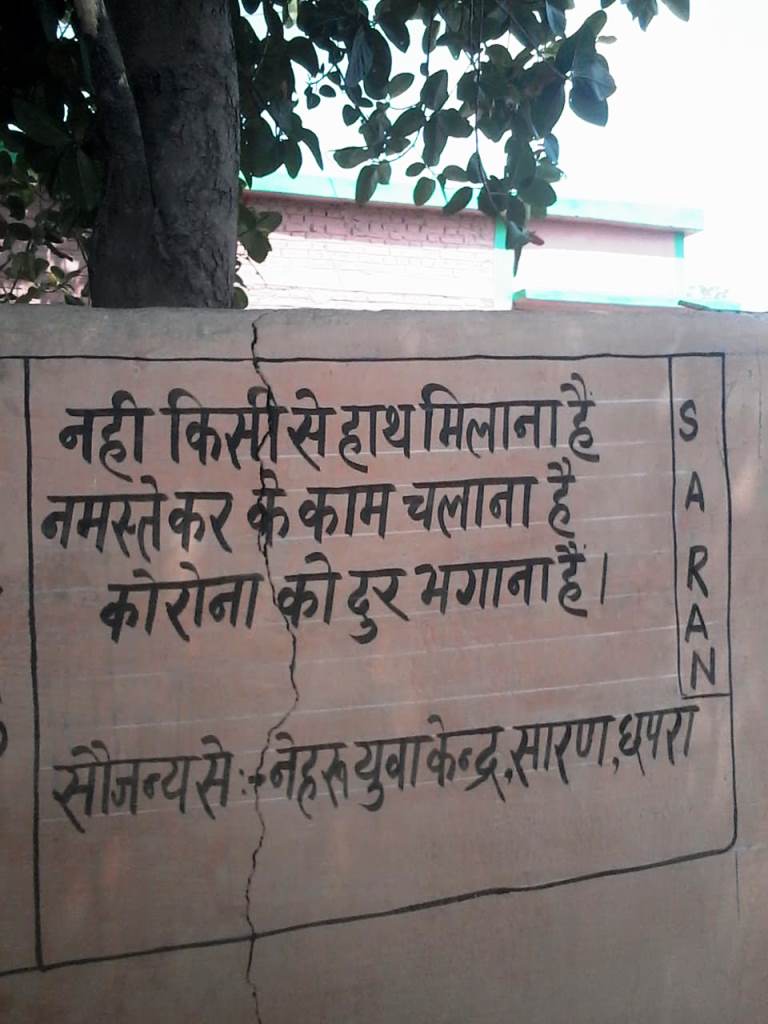 नही किसी से हाथ मिलाना हैं
नमस्ते कर के काम चलाना हैं
कोरोना को दुर भगाना हैं।
सौजन्य से:- नेहरू युवा केन्द्र, सारण, छपरा
SARAN